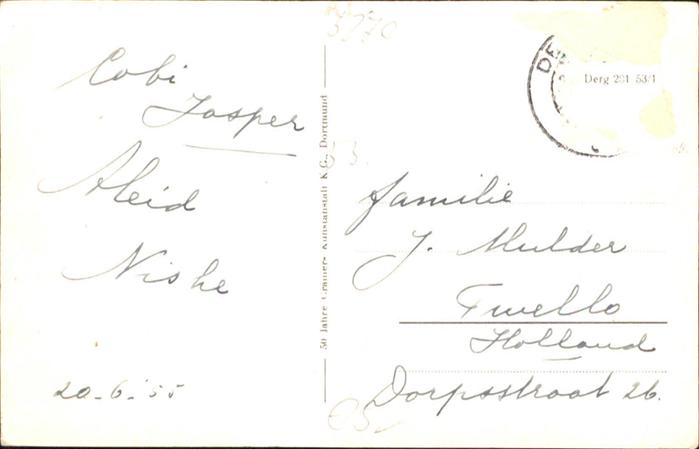 Cobi
Jasper
Aleid
Niske
20-6-'55
50 Jahre Cramers Kunstanstalt K.G. Dortmund
5270
DE
Derg 281 53/1
familie
J. Mulder
Twello
Holland
Dorpsstraat 26.